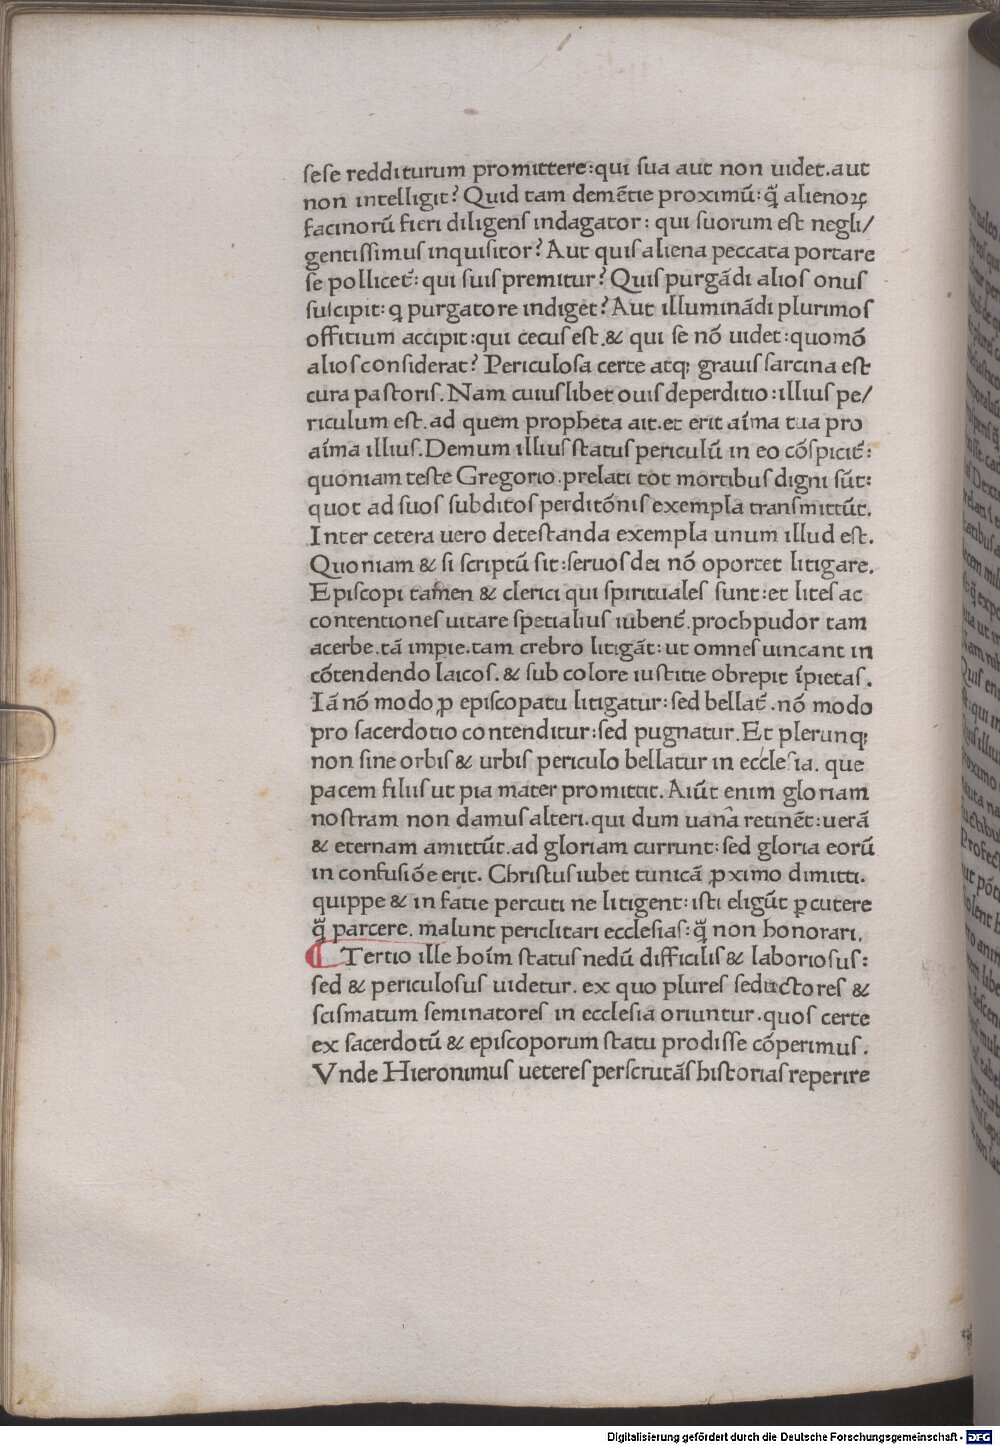 seſe redditurum promittere:qui ſua aut non uidet.aut
non intelligit? Quid tam demẽtie proximũ: q̃ᷓ alienoꝝ
facinorũ fieri diligens indagator: qui ſuorum eſt negli/
gentiſſimus inquiſitor? Aut quis aliena peccata portare
ſe pollicet̃: qui ſuis premitur? Quis purgãdi alios onus
ſuſcipit: q purgatore indiget? Aut illuminãdi plurimos
offitium accipit:qui cecus eſt.& qui ſe nõ uidet:quomõ
alios conſiderat? Periculoſa certe atq; grauis ſarcina eſt
cura paſtoris. Nam cuius libet ouis deperditio:illius pe/
riculum eſt.ad quem propheta ait.et erit aĩma tua pro
aĩma illius. Demum illius ſtatus periculũ in eo cõſpicit̃:
quoniam teſte Gregorio.prelati tot mortibus digni ſũt:
quot ad ſuos ſubditos perditõnis exempla tranſmittũt.
Inter cetera uero deteſtanda exempla unum illud eſt.
Quoniam & ſi ſcriptũ ſit:ſeruos dei nõ oportet litigare.
Epiſcopi tamen & clerici qui ſpirituales ſunt:et lites ac
contentiones uitare ſpetialius iubent̃.prochpudor tam
acerbe.tã impie.tam crebro litigãt:ut omnes uincant in
cõtendendo laicos.& ſub colore iuſtitie obrepit ĩpietas.
Iã nõ modo ꝓ epiſcopatu litigatur:ſed bellat̃.nõ modo
pro ſacerdotio contenditur:ſed pugnatur.Et plerunq;
non ſine orbis & urbis periculo bellatur in eccleſia. que
pacem filiis ut pia mater promittit. Aiũt enim gloriam
noſtram non damus alteri.qui dum uanã retinẽt:uerã
& eternam amittũt.ad gloriam currunt:ſed gloria eorũ
in confuſiõe erit. Chriſtus iubet tunicã ꝓximo dimitti.
quippe & in fatie percuti ne litigent:iſti eligũt ꝑcutere
q̃ᷓ parcere. malunt periclitari eccleſias:q̃ᷓ non honorari.
¶ Tertio ille hoĩm ſtatus nedũ difficilis & laborioſus:
ſed & periculoſus uidetur. ex quo plures ſeductores &
ſciſmatum ſeminatores in eccleſia oriuntur.quos certe
ex ſacerdotũ & epiſcoporum ſtatu prodiſſe cõperimus.
Vnde Hieronimus ueteres perſcrutãs hiſtorias reperire
Digitalisierung gefördert durch die Deutsche Forschungsgemeinschaft - DFG